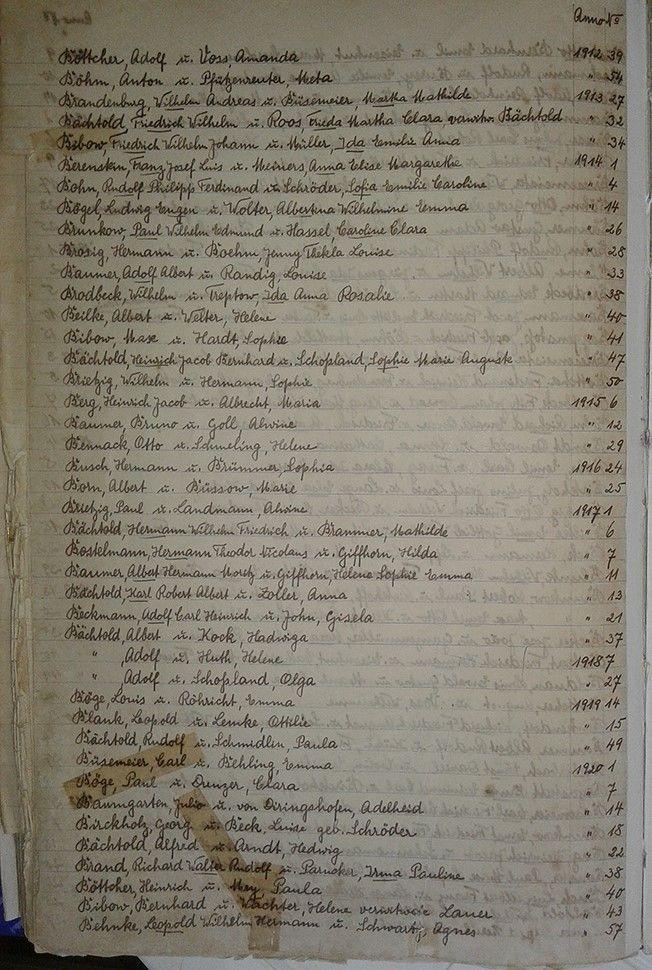 Anno No
Böttcher, Adolf u. Voss, Amanda 1912 39
Böhm, Anton u. Pfützenreuter, Meta " 54
Brandenburg, Wilhelm Andreas u. Büsemeier, Martha Mathilde 1913 27
Bächtold, Friedrich Wilhelm u. Roos, Frieda Martha Clara, verwitw. Bächtold " 32
Bibow, Friedrich Wilhelm Johann u. Müller, Ida Emilie Anna " 34
Berenstein, Franz Josef Luis u. Meiners, Anna Elise Margarethe 1914 1
Bohn, Rudolf Philipp Ferdinand u. Schröder, Sofia Emilie Caroline " 4
Bögel, Ludwig Eugen u. Wolter, Albertina Wilhelmine Emma " 14
Brunkow, Paul Wilhelm Edmund u. Hassel Caroline Clara " 26
Brosig, Hermann u. Boehm, Jenny Thekla Louise " 28
Baumer, Adolf Albert u. Randig, Louise " 33
Brodbeck, Wilhelm u. Treptow, Ida Anna Rosalie " 38
Beilke, Albert u. Welter, Helene " 40
Bibow, Max u. Hardt, Sophie " 41
Bächtold, Heinrich Jacob Bernhard u. Schossland, Sophie Marie August " 47
Brietzig, Wilhelm u. Hermann, Sophie " 50
Berg, Heinrich Jacob u. Albrecht, Maria 1915 6
Baumer, Bruno u. Goll, Alwine " 12
Bennack, Otto u. Schmeling, Helene " 29
Busch, Hermann u. Brümmer, Sophia 1916 24
Born, Albert u. Büssow, Marie " 25
Brietzig, Paul u. Landmann, Alwine 1917 1
Bächtold, Hermann Wilhelm Friedrich u. Brammer, Mathilde " 6
Bostelmann, Hermann Theodor Nicolaus u. Giffhorn, Hilda " 7
Baumer, Albert Hermann Moritz u. Giffhorn, Helene Sophie Emma " 11
Bächtold, Karl Robert Albert u. Zoller, Anna " 13
Beckmann, Adolf Carl Heinrich u. John, Gisela " 21
Bächtold, Albert u. Kock, Hadwiga " 37
" , Adolf u. Huth, Helene 1918 7
" , Adolf u. Schossland, Olga " 27
Böge, Louis u. Röhricht, Emma 1919 14
Blank, Leopold u. Lemke, Ottilie " 15
Bächtold, Rudolf u. Schmidlin, Paula " 49
Büsemeier, Carl u. Behling, Emma 1920 1
Böge, Paul u. Clara " 7
Baumgarten, Julio u. von Dirringshofen, Adelheid " 14
Birckholz, Georg u. Beck, Luise geb. Schröder " 18
Bächtold, Alfred u. Arndt, Hedwig " 22
Brand, Richard Walter Rudolf u. Parucker, Irma Pauline " 38
Böttcher, Heinrich u. Mey, Paula " 40
Bibow, Bernhard u. Wächter, Helene verwitwete Lauer " 43
Behnke, Leopold Wilhelm Hermann u. Schwartz, Agnes " 57